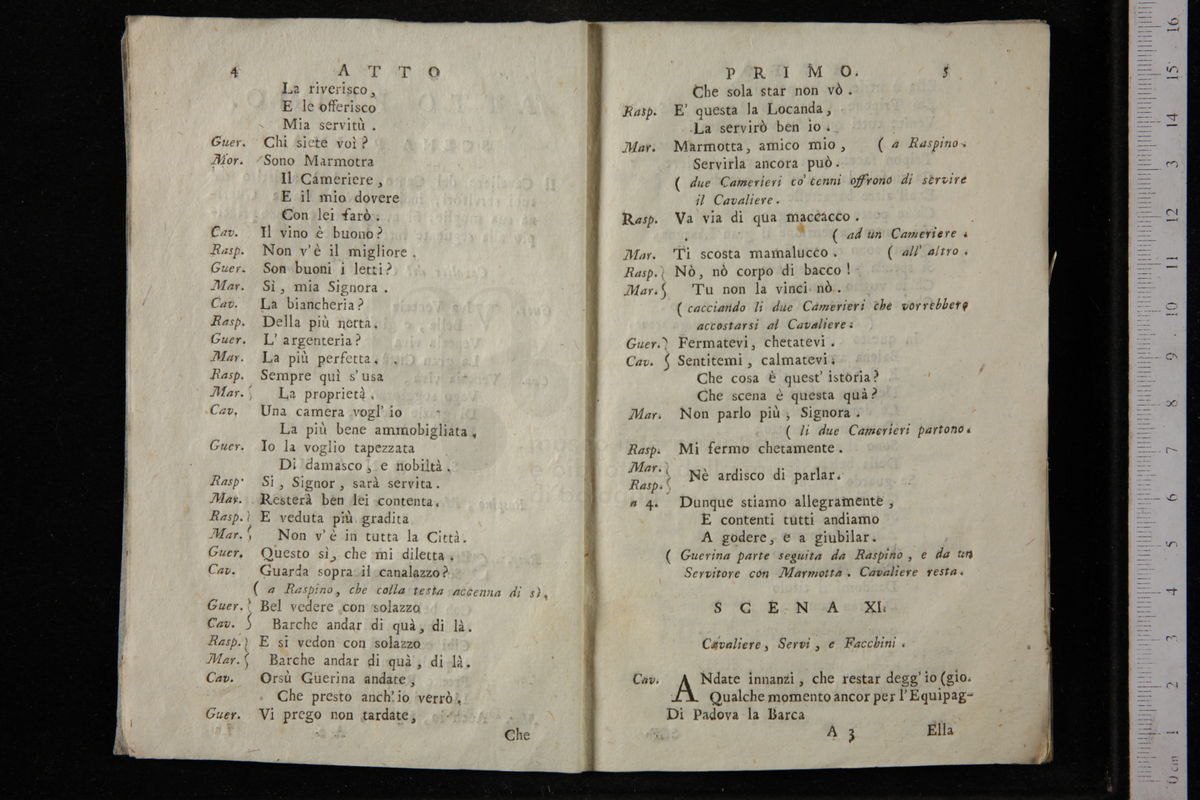 4 ATTO
La riverisco,
E le offerisco
Mia servitù .
Guer. Chi siete voi?
Mor. Sono Marmotra
Il Cameriere,
E il mio dovere
Con lei farò .
Cav. Il vino è buono?
Rasp. Non v'è il migliore .
Guer. Son buoni i letti?
Mar. Sì, mia Signora .
Cav. La biancheria?
Rasp. Della più netta.
Guer. L' argenteria?
Mar. La più perfetta.
Rasp. Sempre quì s'usa
Mar. La proprietà.
Cav. Una camera vogl' io
La più bene ammobigliata.
Guer. Io la voglio tapezzata
Di damasco, e nobiltà.
Rasp. Sì, Signor, sarà servita.
Mar. Resterà ben lei contenta.
Rasp. E veduta più gradita
Mar. Non v'è in tutta la Città.
Guer. Questo sì, che mi diletta.
Cav. Guarda sopra il canalazzo?
( a Raspino, che colla testa accenna di sì.
Guer. Bel vedere con solazzo
Cav. Barche andar di quà, di là.
Rasp. E si vedon con solazzo
Mar. Barche andar di quà, di là.
Cav. Orsù Guerina andate,
Che presto anch' io verrò.
Guer. Vi prego non tardate,
Che
PRIMO. 5
Che sola star non vò .
Rasp. E' questa la Locanda,
La servirò ben io .
Mar. Marmotta, amico mio, ( a Raspino.
Servirla ancora può.
( due Camerieri co' cenni offrono di servire
il Cavaliere.
Rasp. Va via di qua maccacco .
( ad un Cameriere .
Mar. Ti scosta mamalucco . ( all' altro .
Rasp. Nò, nò corpo di bacco!
Mar. Tu non la vinci nò .
( cacciando li due Camerieri che vorrebbero
accostarsi al Cavaliere.
Guer. Fermatevi, chetatevi .
Cav. Sentitemi, calmatevi.
Che cosa è quest' istoria?
Che scena è questa quà?
Mar. Non parlo più, Signora .
( li due Camerieri partono.
Rasp. Mi fermo chetamente .
Mar.
Rasp. Nè ardisco di parlar.
a 4. Dunque stiamo allegramente,
E contenti tutti andiamo
A godere, e a giubilar.
( Guerina parte seguita da Raspino, e da un
Servitore con Marmotta. Cavaliere resta.
SCENA XI.
Cavaliere, Servi, e Facchini .
Cav. ANdate innanzi, che restar degg' io (gio.
Qualche momento ancor per l'Equipag-
Di Padova la Barca
A 3 Ella
0 cm 1 2 3 4 5 6 7 8 9 10 11 12 13 14 15 16